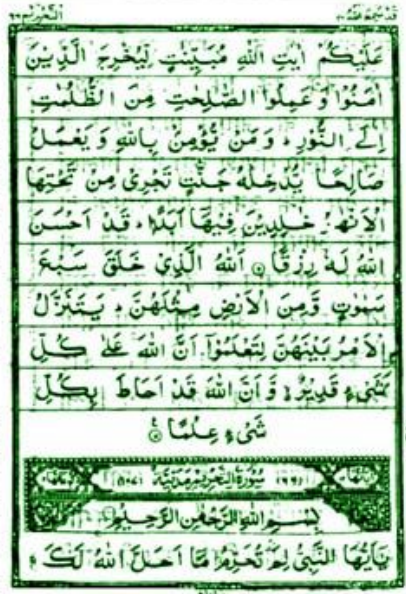 قد سمع الله ٢٨
التحريم ٦٦
عَلَيْكُمْ اٰيٰتِ اللّٰهِ مُبَيِّنٰتٍ لِّيُخْرِجَ الَّذِيْنَ
اٰمَنُوْا وَعَمِلُوا الصّٰلِحٰتِ مِنَ الظُّلُمٰتِ
اِلَى النُّوْرِ ؕ وَمَنْ يُّؤْمِنْۢ بِاللّٰهِ وَيَعْمَلْ
صَالِحًا يُّدْخِلْهُ جَنّٰتٍ تَجْرِىْ مِنْ تَحْتِهَا
الْاَنْهٰرُ خٰلِدِيْنَ فِيْهَاۤ اَبَدًا ؕ قَدْ اَحْسَنَ
اللّٰهُ لَهٗ رِزْقًا ۝ اَللّٰهُ الَّذِىْ خَلَقَ سَبْعَ
سَمٰوٰتٍ وَّمِنَ الْاَرْضِ مِثْلَهُنَّ ؕ يَتَنَزَّلُ
الْاَمْرُ بَيْنَهُنَّ لِتَعْلَمُوْۤا اَنَّ اللّٰهَ عَلٰى كُلِّ
شَىْءٍ قَدِيْرٌ ۙ وَّاَنَّ اللّٰهَ قَدْ اَحَاطَ بِكُلِّ
شَىْءٍ عِلْمًا ۝
(٦٦) سُوْرَةُ التَّحْرِيْمِ مَدَنِيَّةٌ (١٠٧)
بِسْمِ اللّٰهِ الرَّحْمٰنِ الرَّحِيْمِ
يٰۤاَيُّهَا النَّبِىُّ لِمَ تُحَرِّمُ مَاۤ اَحَلَّ اللّٰهُ لَكَ ۚ